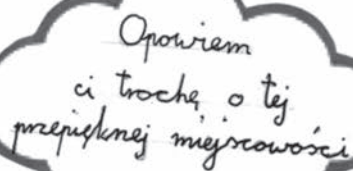 Opowiem
ci trochę o tej
przepięknej miejscowości